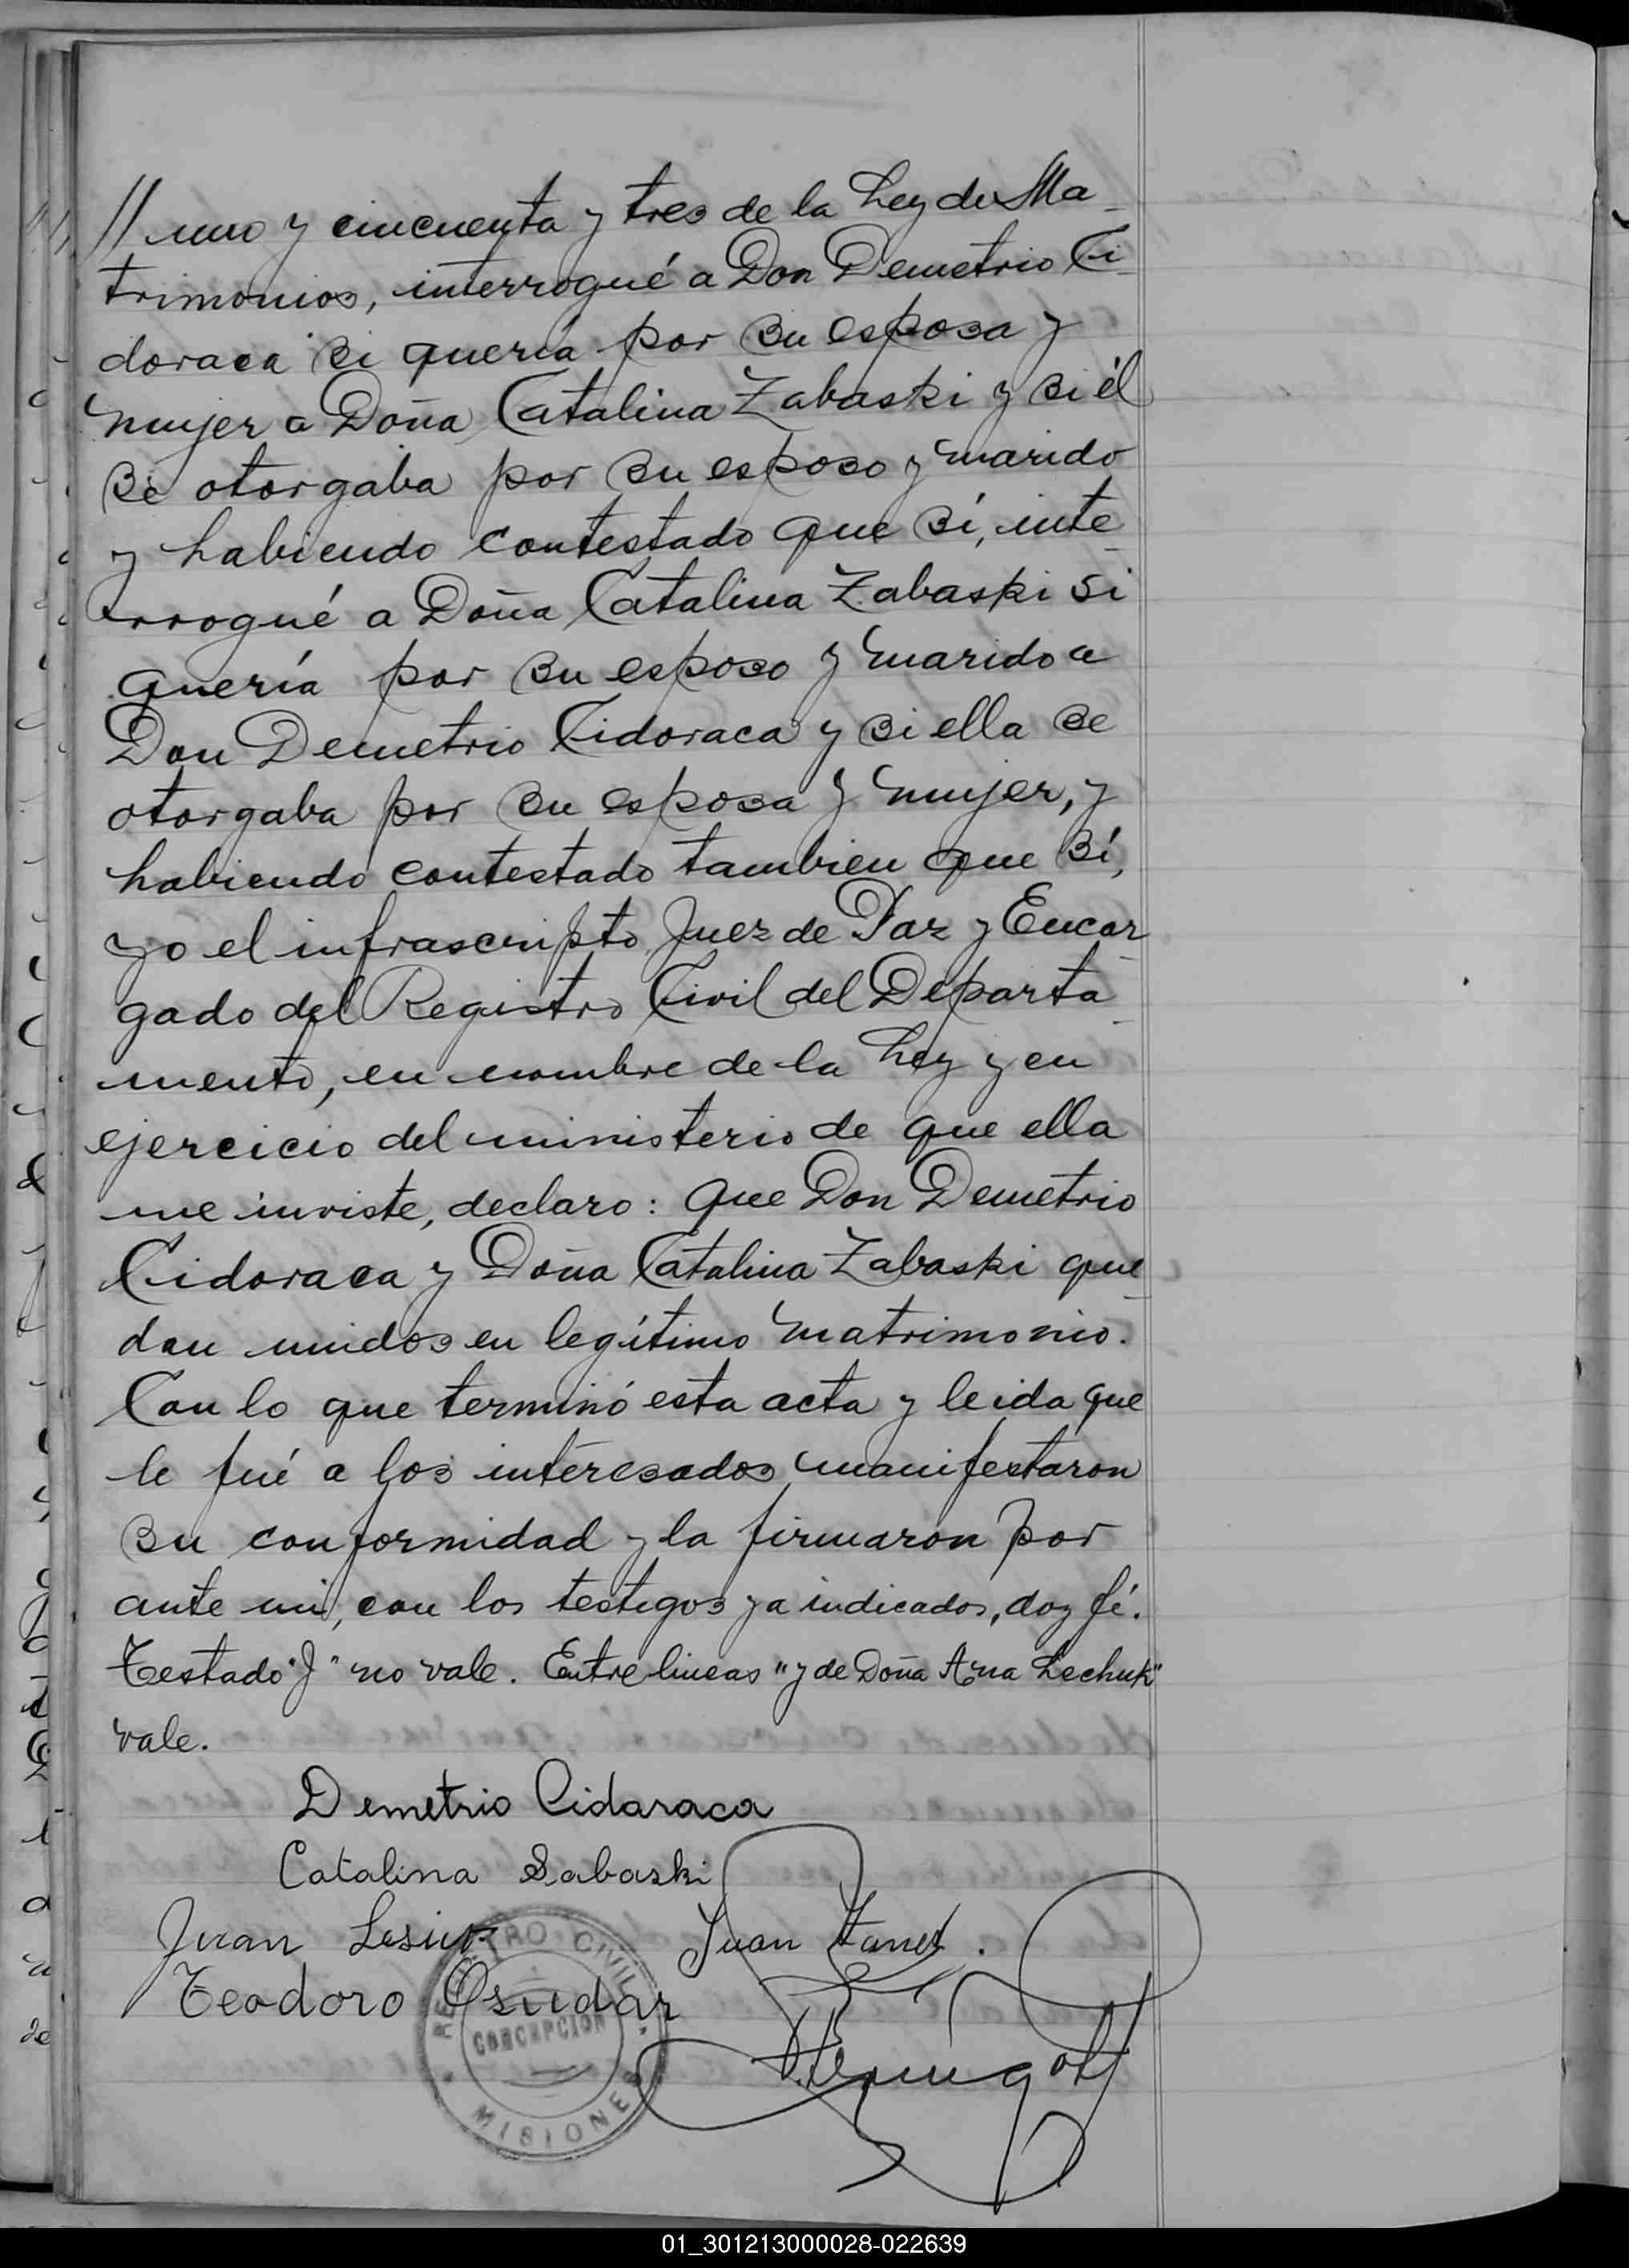 // uno y cincuenta y tres de la Ley de Ma_
trimonios, interrogué a Don Demetrio Ci_
doraca si quería por su esposa y
mujer a Doña Catalina Zabaski y si él
se otorgaba por su esposo y marido
y habiendo contestado que sí, inte_
rrogué a Doña Catalina Zabaski si
quería por su esposo y marido a
Don Demetrio Cidoraca y si ella se
otorgaba por su esposa y mujer, y
habiendo contestado tambien que sí,
yo el infrascripto Juez de Paz y Encar_
gado del Registro Civil del Departa_
mento, en nombre de la Ley y en
ejercicio del ministerio de que ella
me inviste, declaro: Que Don Demetrio
Cidoraca y Doña Catalina Zabaski que_
dan unidos en legítimo matrimonio.
Con lo que terminó esta acta y leida que
le fué a los interesados manifestaron
su conformidad y la firmaron por
ante mi, con los testigos ya indicados, doy fé.
Testado "J" no vale. Entre lineas "y de Doña Ana Lechuk"
vale.
Demetrio Cidaraca
Catalina Sabaski
Juan Lesiuk Juan
Teodoro
REGISTRO CIVIL
CONCEPCION
MISIONES
01_301213000028-022639